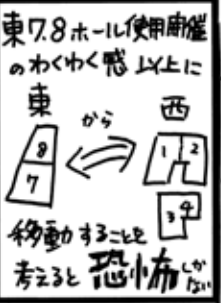 東7.8ホール使用開催
のわくわく感以上に
東
から
西
8
7
1
2
3
4
移動することを
考えると恐怖しか
ない